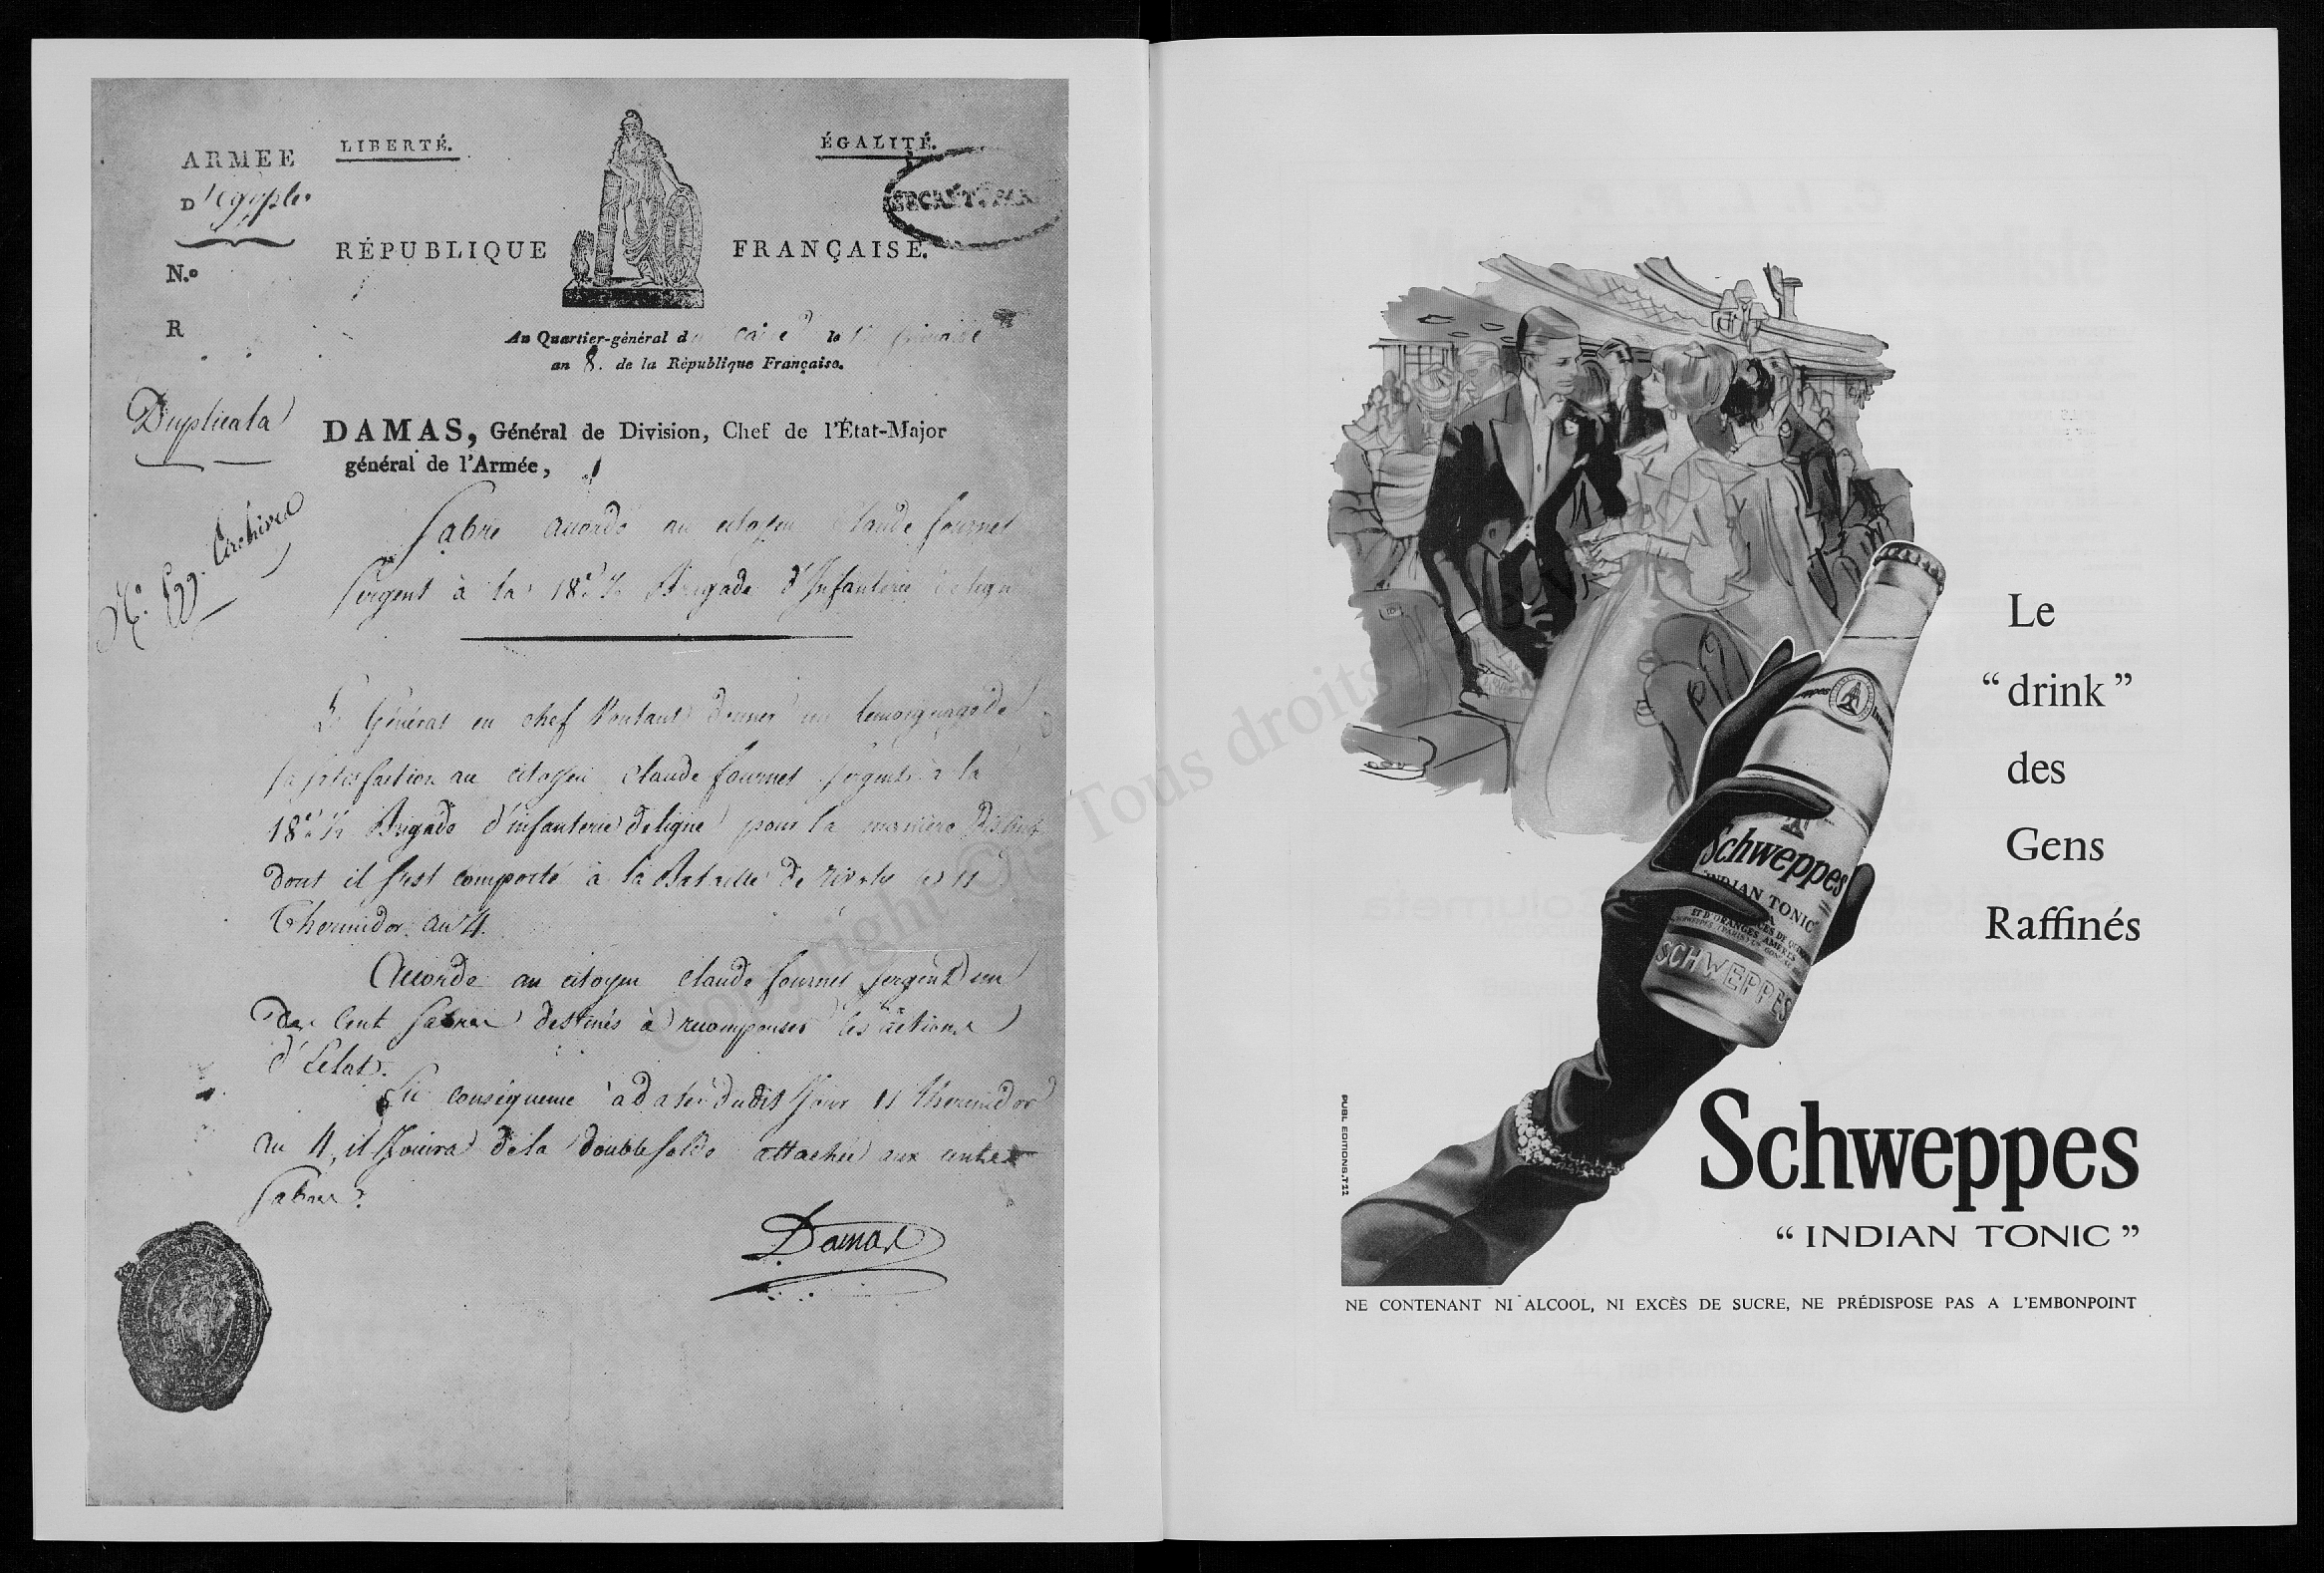 ARMEE
D'Egypte
LIBERTÉ.
ÉGALITÉ.
RÉPUBLIQUE FRANÇAISE.
N.o
R
Au Quartier-général du Caire le
an 8. de la République Française.
Duplicata
DAMAS, Général de Division, Chef de l'État-Major
général de l'Armée,
Archives
Sabre accordé au citoyen Claude fournet
Sergent à la 18e ½ Brigade d'Infanterie de ligne
Le Général en chef Voulant donner un temoignage de
sa satisfaction au citoyen Claude fournet sergent à la
18e ½ Brigade d'infanterie de ligne pour la maniere
dont il s'est comporté à la Bataille de rivoly le 11
Thermidor an 4.
Accorde au citoyen Claude fournet sergent un
des Cent Sabres destinés à recompenser les actions
d'Eclat.
En consequence à dater dudit Jour 11 thermidor
an 4, il Jouira de la double solde attachée aux
Sabres.
Damas
Copyright © - Tous droits
Le
“drink”
des
Gens
Raffinés
Schweppes
INDIAN TONIC
SCHWEPPES
PUBL. EDITIONS.T22
Schweppes
“INDIAN TONIC”
NE CONTENANT NI ALCOOL, NI EXCÈS DE SUCRE, NE PRÉDISPOSE PAS A L'EMBONPOINT